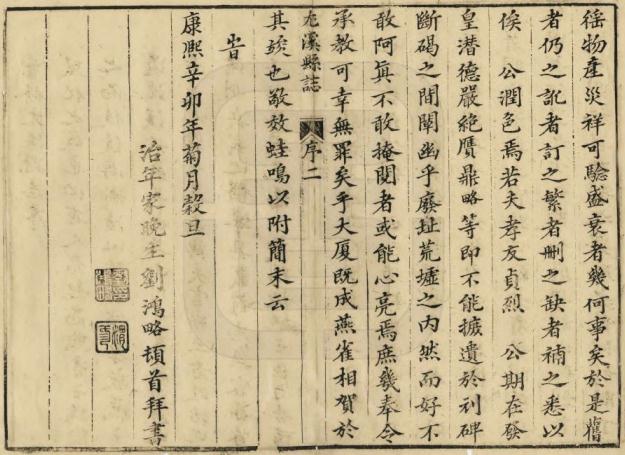 徭物產災祥可驗盛衰者幾何事矣於是舊
者仍之訛者訂之繁者刪之缺者補之悉以
俟 公潤色焉若夫孝友貞烈 公期在發
皇潛德嚴絕贋鼎略等即不能摭遺於利碑
斷碣之間闡幽乎廢址荒墟之內然而好不
敢阿眞不敢掩閱者或能心亮焉庶幾奉令
承教可幸無罪矣乎大厦既成燕雀相賀於
尤溪縣誌 序二
其竣也敬效蛙鳴以附簡末云
旹
康熙辛卯年菊月穀旦
治年家晚生劉鴻略頓首拜書